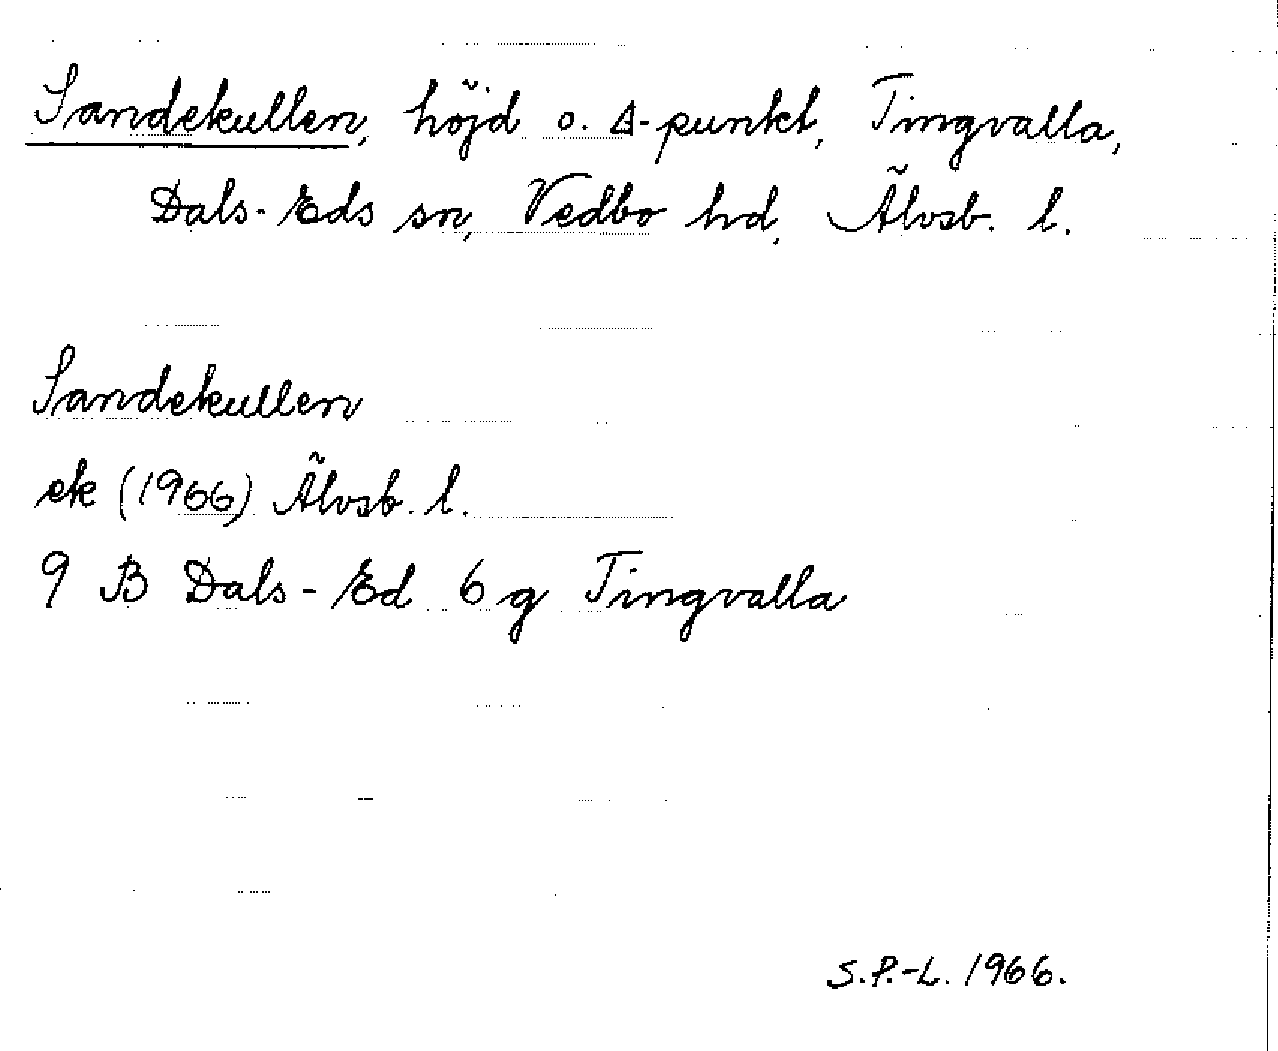 Sandekullen, höjd o. Δ-punkt, Tingvalla,
Dals-Eds sn, Vedbo hd, Älvsb. l.
Sandekullen
ek (1966) Älvsb. l.
9 B Dals-Ed 6 g Tingvalla
S.P.-L. 1966.